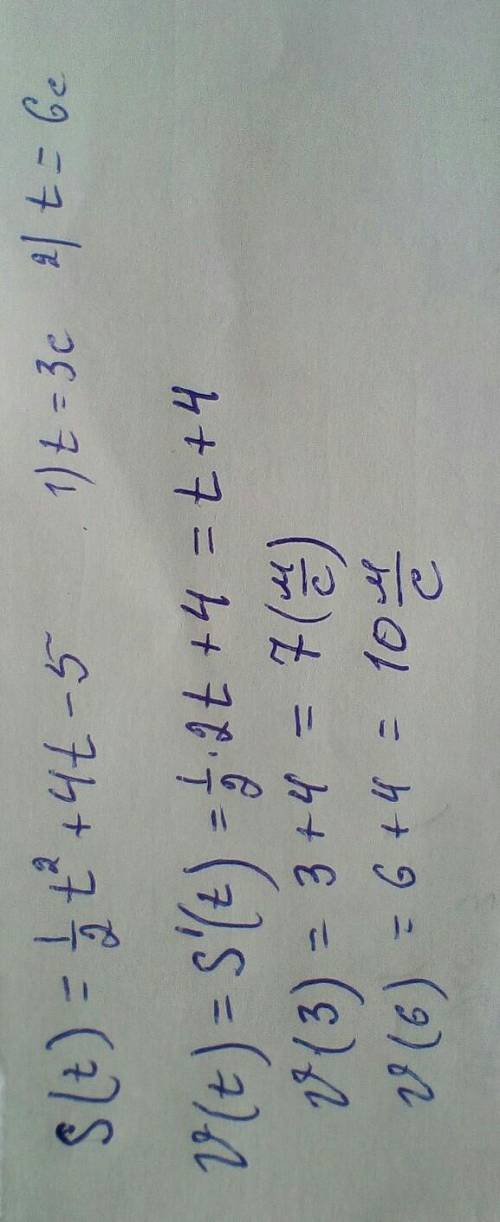 S(t) = 1/2 t² + 4t − 5 1) t = 3c 2) t = 6c
v(t) = S'(t) = 1/2 · 2t + 4 = t + 4
v(3) = 3 + 4 = 7 (м/c)
v(6) = 6 + 4 = 10 м/c